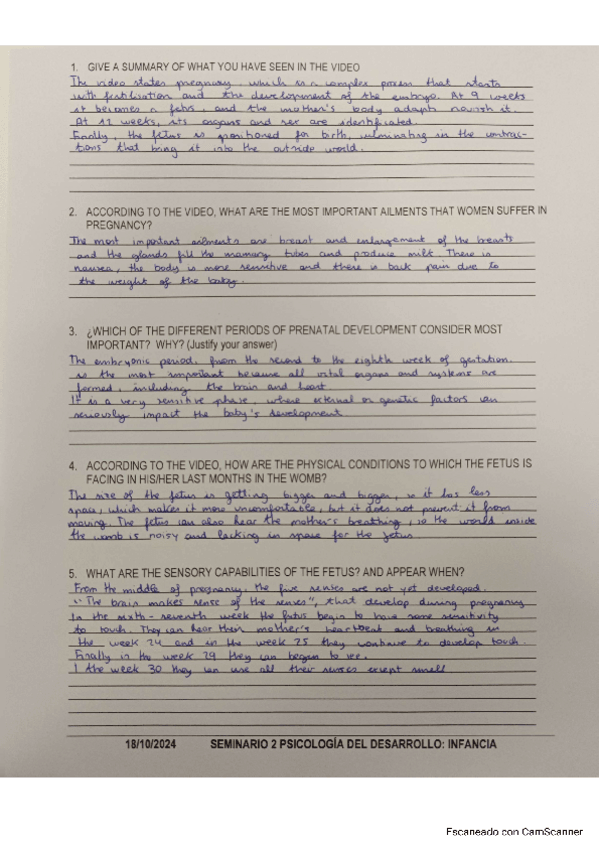 1. GIVE A SUMMARY OF WHAT YOU HAVE SEEN IN THE VIDEO
The video states pregnancy, which is a complex process that starts
with fertilisation and the development of the embryo. At 9 weeks
it becomes a fetus, and the mother's body adapts nourish it.
At 12 weeks, its organs and sex are identificated.
Finally, the fetus is positioned for birth, culminating in the contrac-
tions that bring it into the outside world.
2. ACCORDING TO THE VIDEO, WHAT ARE THE MOST IMPORTANT AILMENTS THAT WOMEN SUFFER IN
PREGNANCY?
The most important ailments are breast and enlargement of the breasts
and the glands fill the mamary tubes and produce milk. There is
nausea, the body is more sensitive and there is back pain due to
the weight of the baby.
3. ¿WHICH OF THE DIFFERENT PERIODS OF PRENATAL DEVELOPMENT CONSIDER MOST
IMPORTANT? WHY? (Justify your answer)
The embryonic period, from the second to the eighth week of gestation.
is the most important because all vital organs and systems are
formed, including the brain and heart.
It is a very sensitive phase, where external or genetic factors can
seriously impact the baby's development
4. ACCORDING TO THE VIDEO, HOW ARE THE PHYSICAL CONDITIONS TO WHICH THE FETUS IS
FACING IN HIS/HER LAST MONTHS IN THE WOMB?
The size of the fetus is getting bigger and bigger, so it has less
space, which makes it more uncomfortable, but it does not prevent it from
moving. The fetus can also hear the mother's breathing, so the world inside
the womb is noisy and lacking in space for the fetus.
5. WHAT ARE THE SENSORY CAPABILITIES OF THE FETUS? AND APPEAR WHEN?
From the middle of pregnancy, the five senses are not yet developed.
"The brain makes sense of the senses", that develop during pregnancy
In the sixth - seventh week the fetus begin to have some sensitivity
to touch. They can hear their mother's heartbeat and breathing in
the week 24 and in the week 25 they to develop touch.
Finally in the week 29 they can begin to see.
the week 30 they can use all their senses except smell
18/10/2024 SEMINARIO 2 PSICOLOGÍA DEL DESARROLLO: INFANCIA
Escaneado con CamScanner